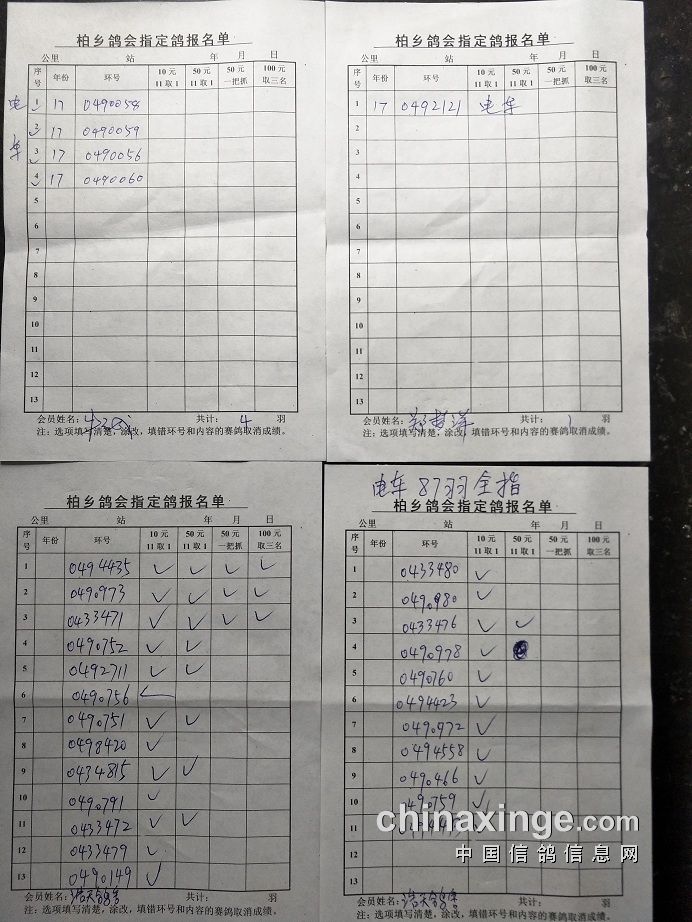 柏乡鸽会指定鸽报名单
公里 站 年 月 日
序号 年份 环号 10元 11取1 50元 11取1 50元 一把抓 100元 取三名
电车
1 17 0490054
2 17 0490059
3 17 0490056
4 17 0490060
5
6
7
8
9
10
11
12
13
会员姓名: 共计: 4 羽
注:选项填写清楚,涂改,填错环号和内容的赛鸽取消成绩。
柏乡鸽会指定鸽报名单
公里 站 年 月 日
序号 年份 环号 10元 11取1 50元 11取1 50元 一把抓 100元 取三名
1 17 0492121 电车
2
3
4
5
6
7
8
9
10
11
12
13
会员姓名: 共计: 1 羽
注:选项填写清楚,涂改,填错环号和内容的赛鸽取消成绩。
柏乡鸽会指定鸽报名单
公里 站 年 月 日
序号 年份 环号 10元 11取1 50元 11取1 50元 一把抓 100元 取三名
1 0494435 ✓ ✓ ✓ ✓
2 0490973 ✓ ✓ ✓ ✓
3 0433471 ✓ ✓ ✓ ✓
4 0490752 ✓ ✓
5 0492711 ✓ ✓
6 0490756 ✓
7 0490751 ✓ ✓
8 0498420 ✓
9 0434815 ✓ ✓
10 0490791 ✓
11 0433472 ✓ ✓
12 0433479 ✓
13 0490149 ✓
会员姓名: 浩天鸽舍 共计: 羽
注:选项填写清楚,涂改,填错环号和内容的赛鸽取消成绩。
电车 87羽全指
柏乡鸽会指定鸽报名单
公里 站 年 月 日
序号 年份 环号 10元 11取1 50元 11取1 50元 一把抓 100元 取三名
1 0433480 ✓
2 0490980 ✓
3 0433476 ✓ ✓
4 0490978 ✓
5 0490760 ✓
6 0494423 ✓
7 0490972 ✓
8 0494558 ✓
9 0490466 ✓
10 0490759 ✓
11 ✓
12
13
会员姓名: 浩天鸽舍 共计: 羽
注:选项填写清楚,涂改,填错环号和内容的赛鸽取消成绩。
chinaxinge.com
中国信鸽信息网